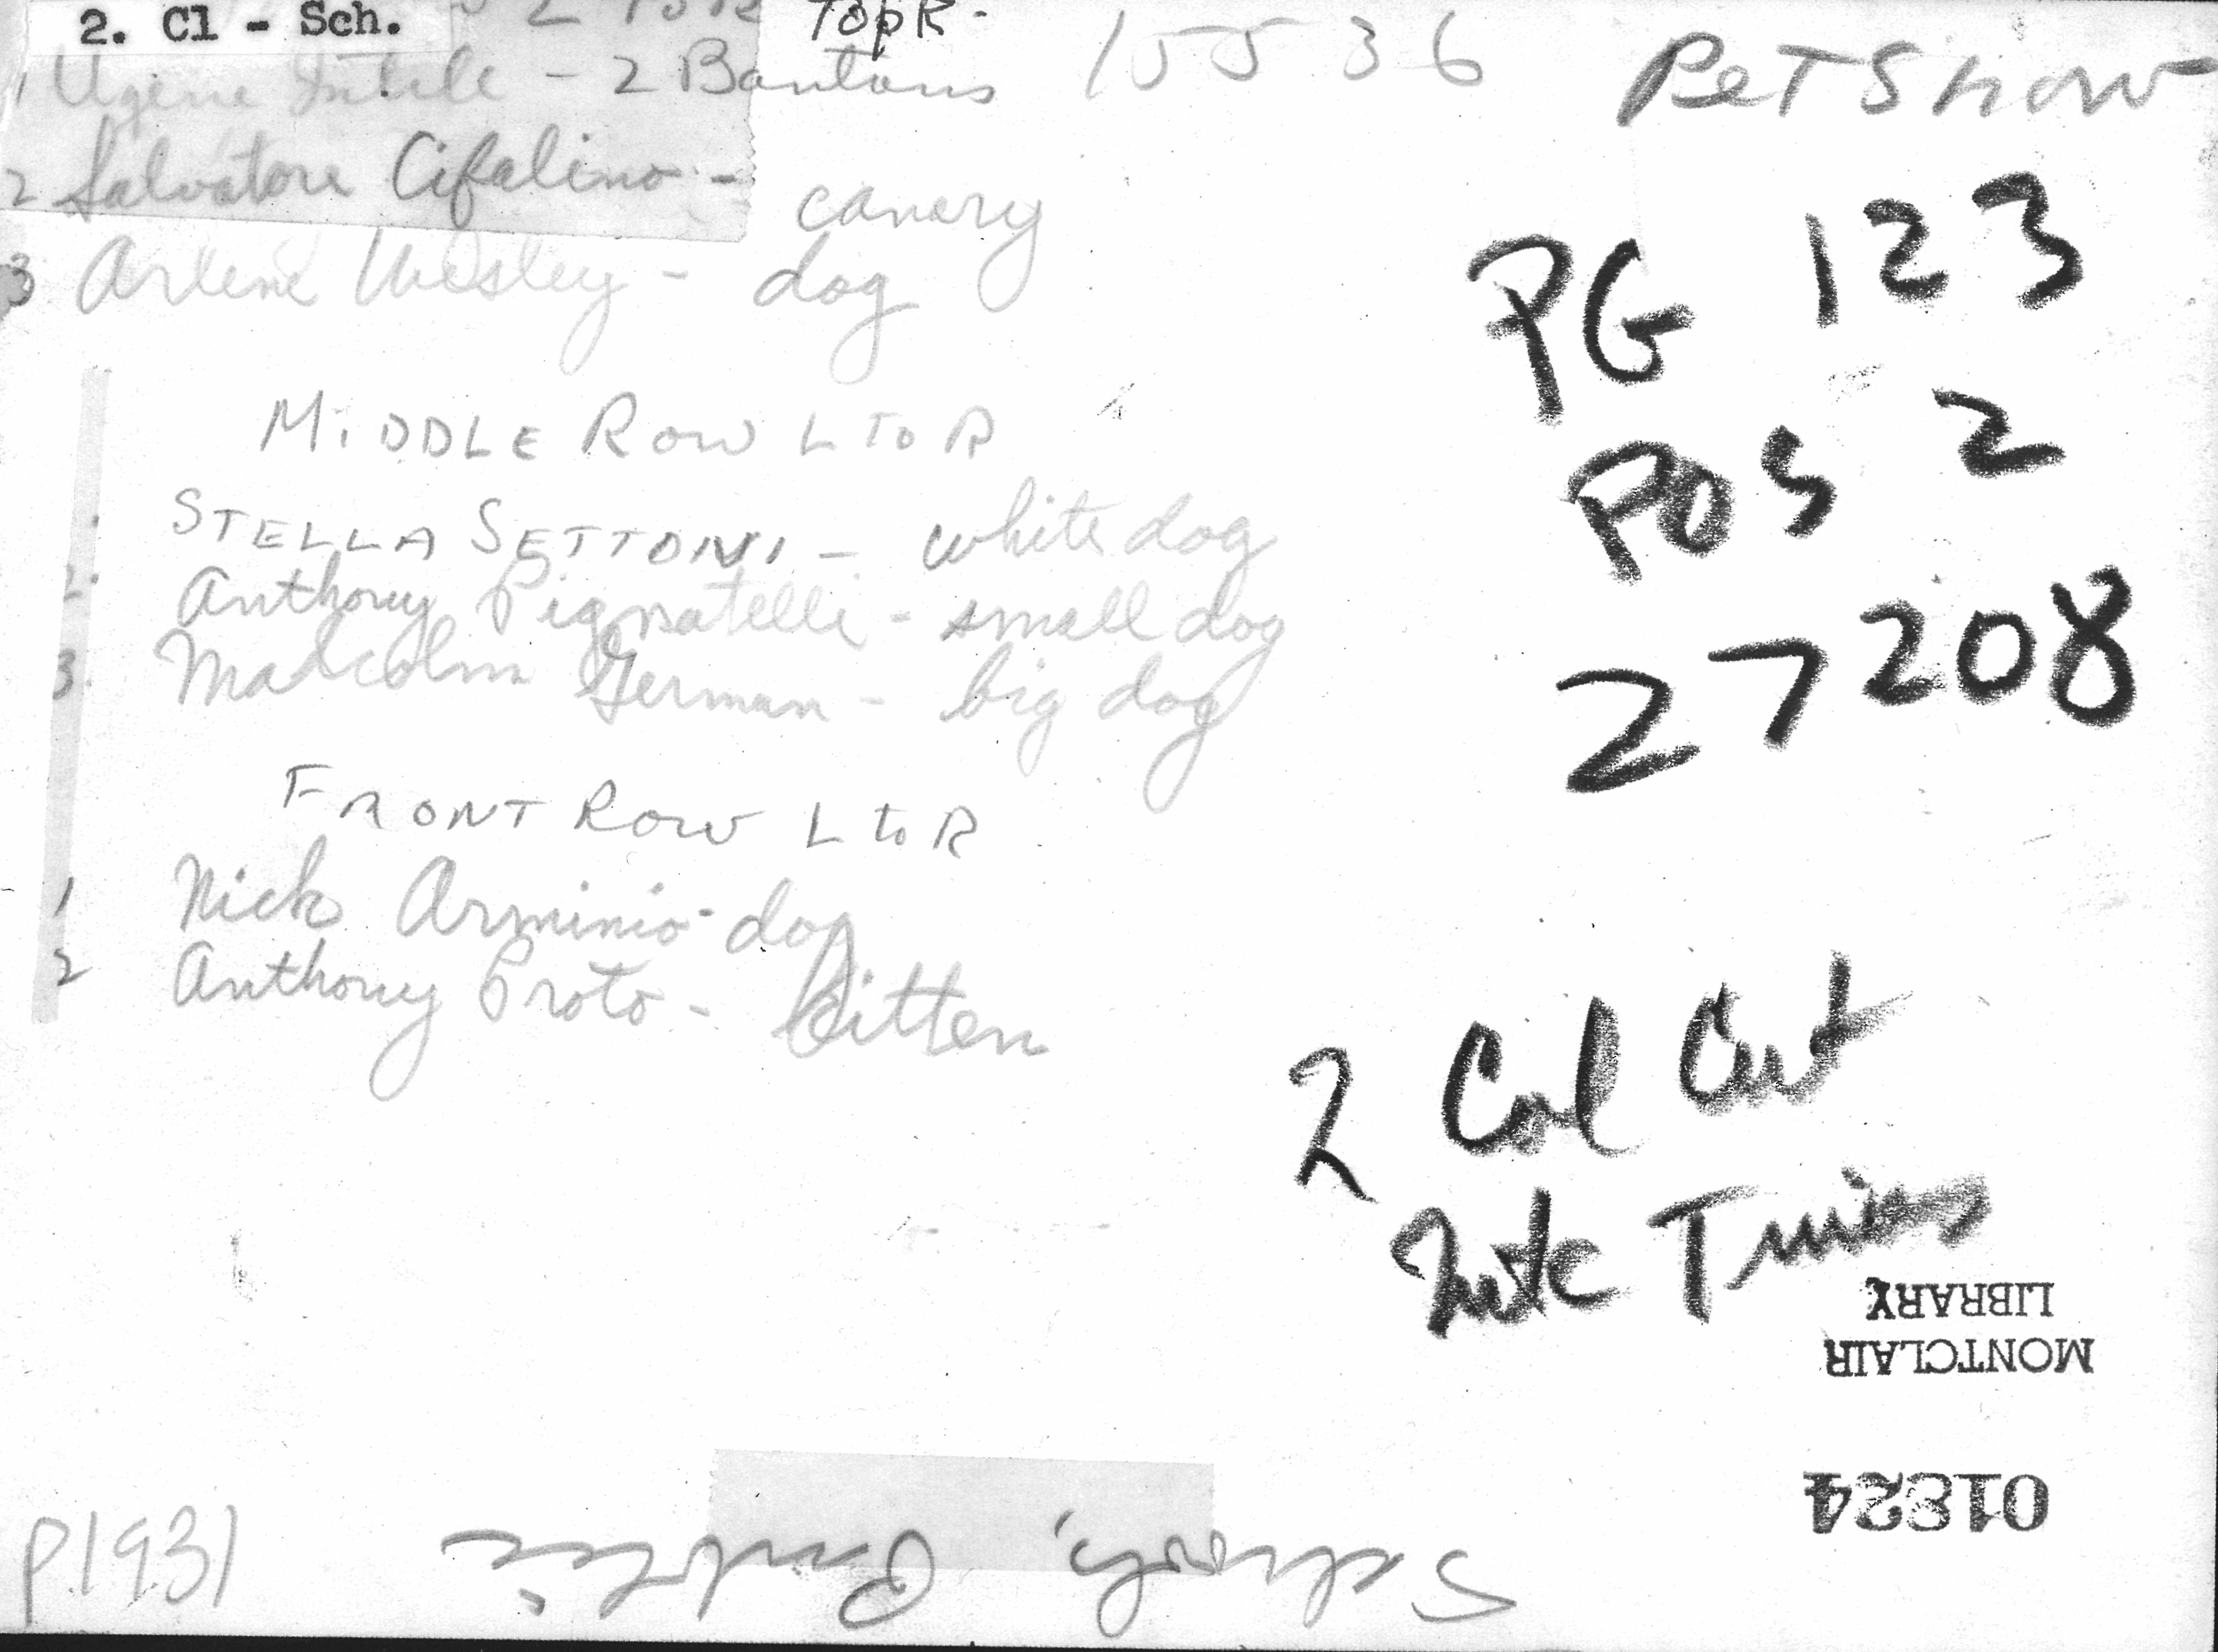 2. Cl - Sch.
Top R.
1 Ugene Intile - 2 Bantans
15536
Pet Show
2 Salvatore Cifalino - canery
3 Arlene Wesley - dog
PG 123
POS 2
27208
MIDDLE ROW L TO R
STELLA SETTONI - white dog
2. Anthony Pignatelli - small dog
3. Malcolm German - big dog
FRONT ROW L to R
1 Nick Arminio - dog
2 Anthony Proto - kitten
2 Col Cut
MONTCLAIR
LIBRARY
01824
P1931
Schools, Public